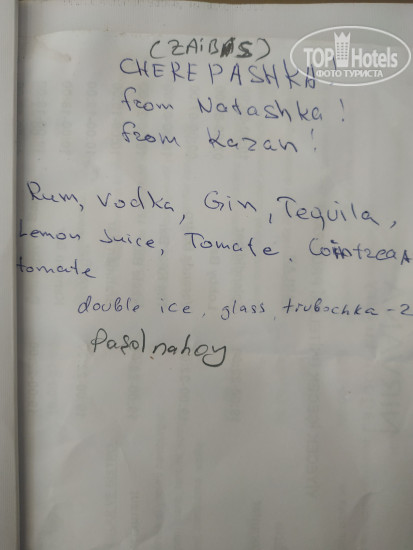 TOP Hotels
ФОТО ТУРИСТА
(ZAIBIS)
CHEREPASHKA!
from Natashka!
from Kazan!
Rum, Vodka, Gin, Tequila,
Lemon Juice, Tomate.
tomate
double ice, glass, trubochka - 2
Pasol nahoy